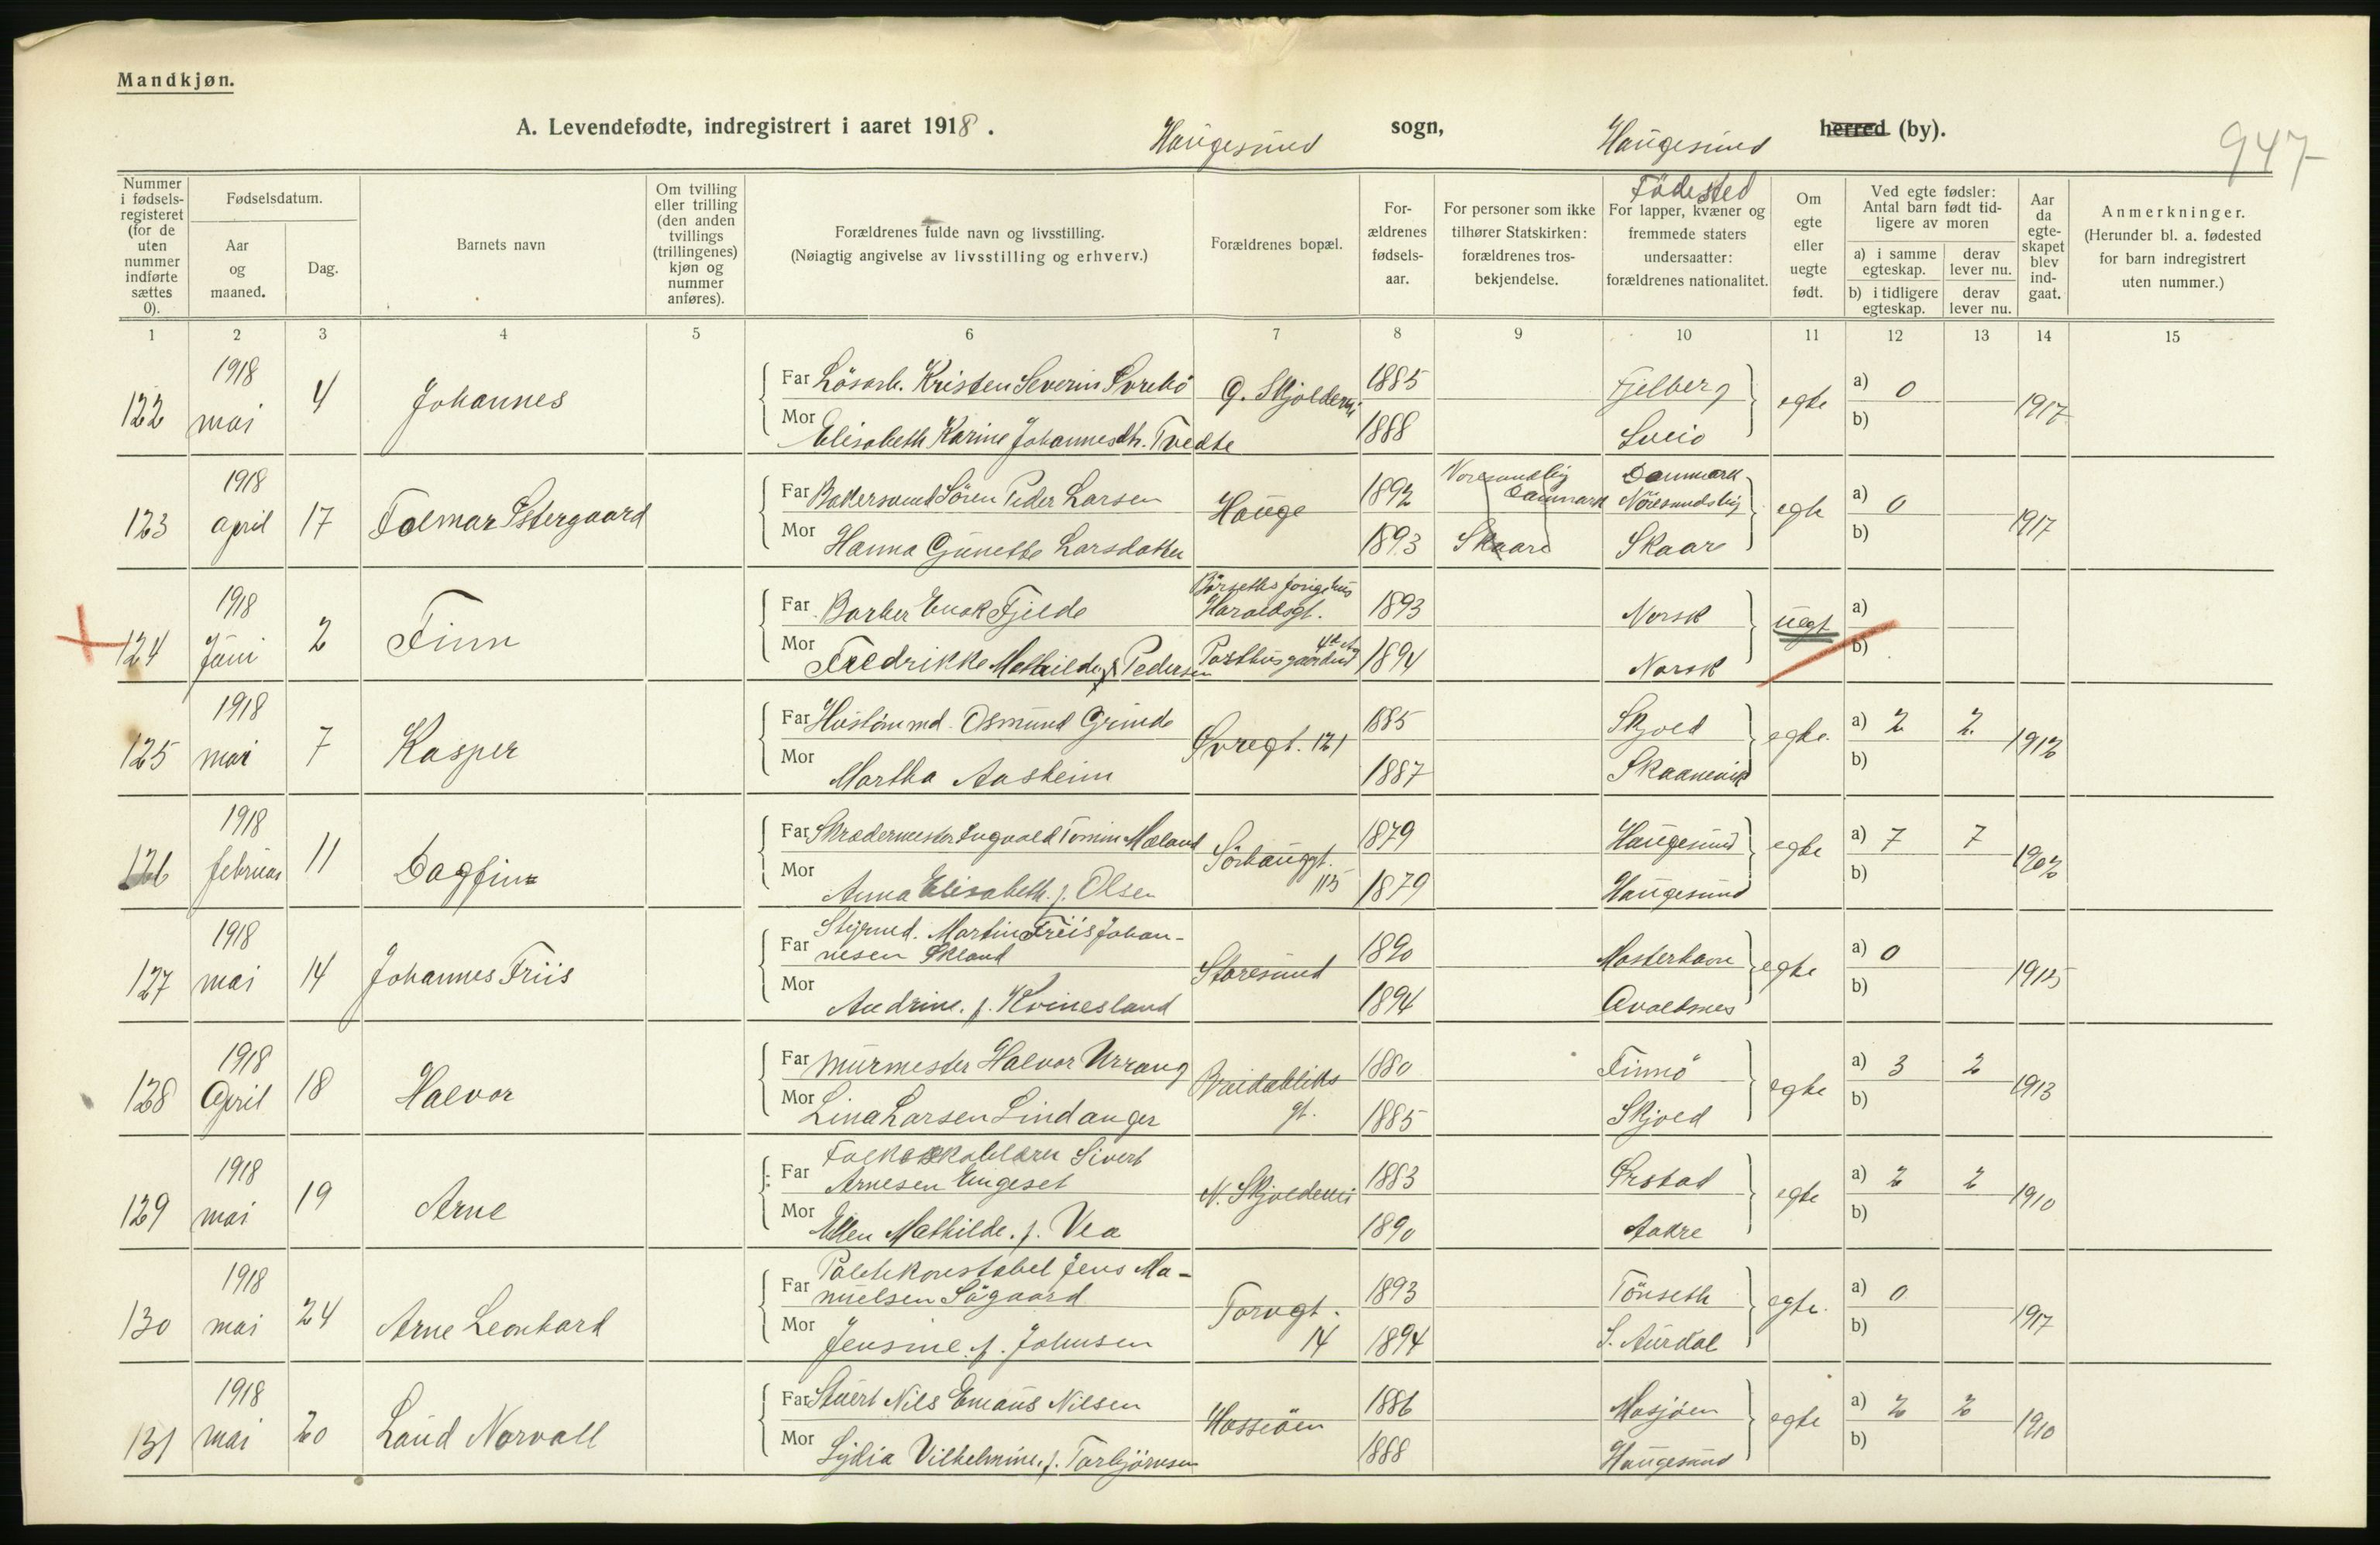 Mandkjøn.
A. Levendefødte, indregistrert i aaret 1918. Haugesund sogn, Haugesund herred (by).
947
Nummer i fødselsregisteret (for de uten nummer indførte sættes 0).
Fødselsdatum.
Aar og maaned.
Dag.
Barnets navn
Om tvilling eller trilling (den anden tvillings (trillingenes) kjøn og nummer anføres).
Forældrenes fulde navn og livsstilling.
(Nøiagtig angivelse av livsstilling og erhverv.)
Forældrenes bopæl.
Forældrenes fødselsaar.
For personer som ikke tilhører Statskirken: forældrenes trosbekjendelse.
Födested
For lapper, kvæner og fremmede staters undersaatter: forældrenes nationalitet.
Om egte eller uegte født.
Ved egte fødsler: Antal barn født tidligere av moren
a) i samme egteskap. derav lever nu.
b) i tidligere egteskap. derav lever nu.
Aar da egteskapet blev indgaat.
Anmerkninger.
(Herunder bl. a. fødested for barn indregistrert uten nummer.)
1 2 3 4 5 6 7 8 9 10 11 12 13 14 15
122 1918 mai 4 Johannes
Far Lösarb. Kristen Severin G. Skjoldevei 1885 Fjelberg egte a) 0 1917
Mor Elisabeth Karine Johannesdtr. Tvedte 1888 Sveio b)
123 1918 april 17 Folmar Østergaard
Far Bakersvend Sören Peder Larsen Hauge 1892 Danmark Nörresundby egte a) 0 1917
Mor Hanna Gunette Larsdatter 1893 Skaare Skaare b)
124 1918 Juni 2 Finn
Far Barber Enok Fjelde Haraldsgt. 1893 Norsk uegt a)
Mor Fredrikke Mathilde Pedersen Posthusgaarden 1894 Norsk b)
125 1918 mai 7 Kasper
Far Hustömmd. Osmund Grinde Øvregt. 121 1885 Skjold egte a) 2 2 1912
Mor Martha Aasheim 1887 Skaanevik b)
126 1918 februar 11 Dagfinn
Far Skrædermester Ingvald Tomin Mæland Sörhauggt. 115 1879 Haugesund egte a) 7 7 1902
Mor Anna Elisabeth f. Olsen 1879 Haugesund b)
127 1918 mai 14 Johannes Friis
Far Styrmd. Martin Friis Johannesen Økland Storesund 1890 Mosterhavn egte a) 0 1915
Mor Audrine f. Kvinesland 1894 Avaldsnes b)
128 1918 April 18 Halvor
Far Murmester Halvor Urrang Breidabliks gt. 1880 Finnö egte a) 3 2 1913
Mor Lina Larsen Lindanger 1885 Skjold b)
129 1918 mai 19 Arne
Far Folkeskolelærer Sivert Arnesen Engeset N. Skjoldevei 1883 Ørstad egte a) 2 2 1910
Mor Ellen Mathilde f. Vea 1890 Aakre b)
130 1918 mai 24 Arne Leonhard
Far Politikonstabel Jens Manuelsen Sögaard Torvgt. 14 1893 Tönseth egte a) 0 1917
Mor Jensine f. Johnsen 1894 S. Aurdal b)
131 1918 mai 20 Laud Norvall
Far Stuert Nils Emaus Nilsen Hasseöen 1886 Mosjöen egte a) 2 2 1910
Mor Lydia Vilhelmine f. Torbjörnsen 1888 Haugesund b)